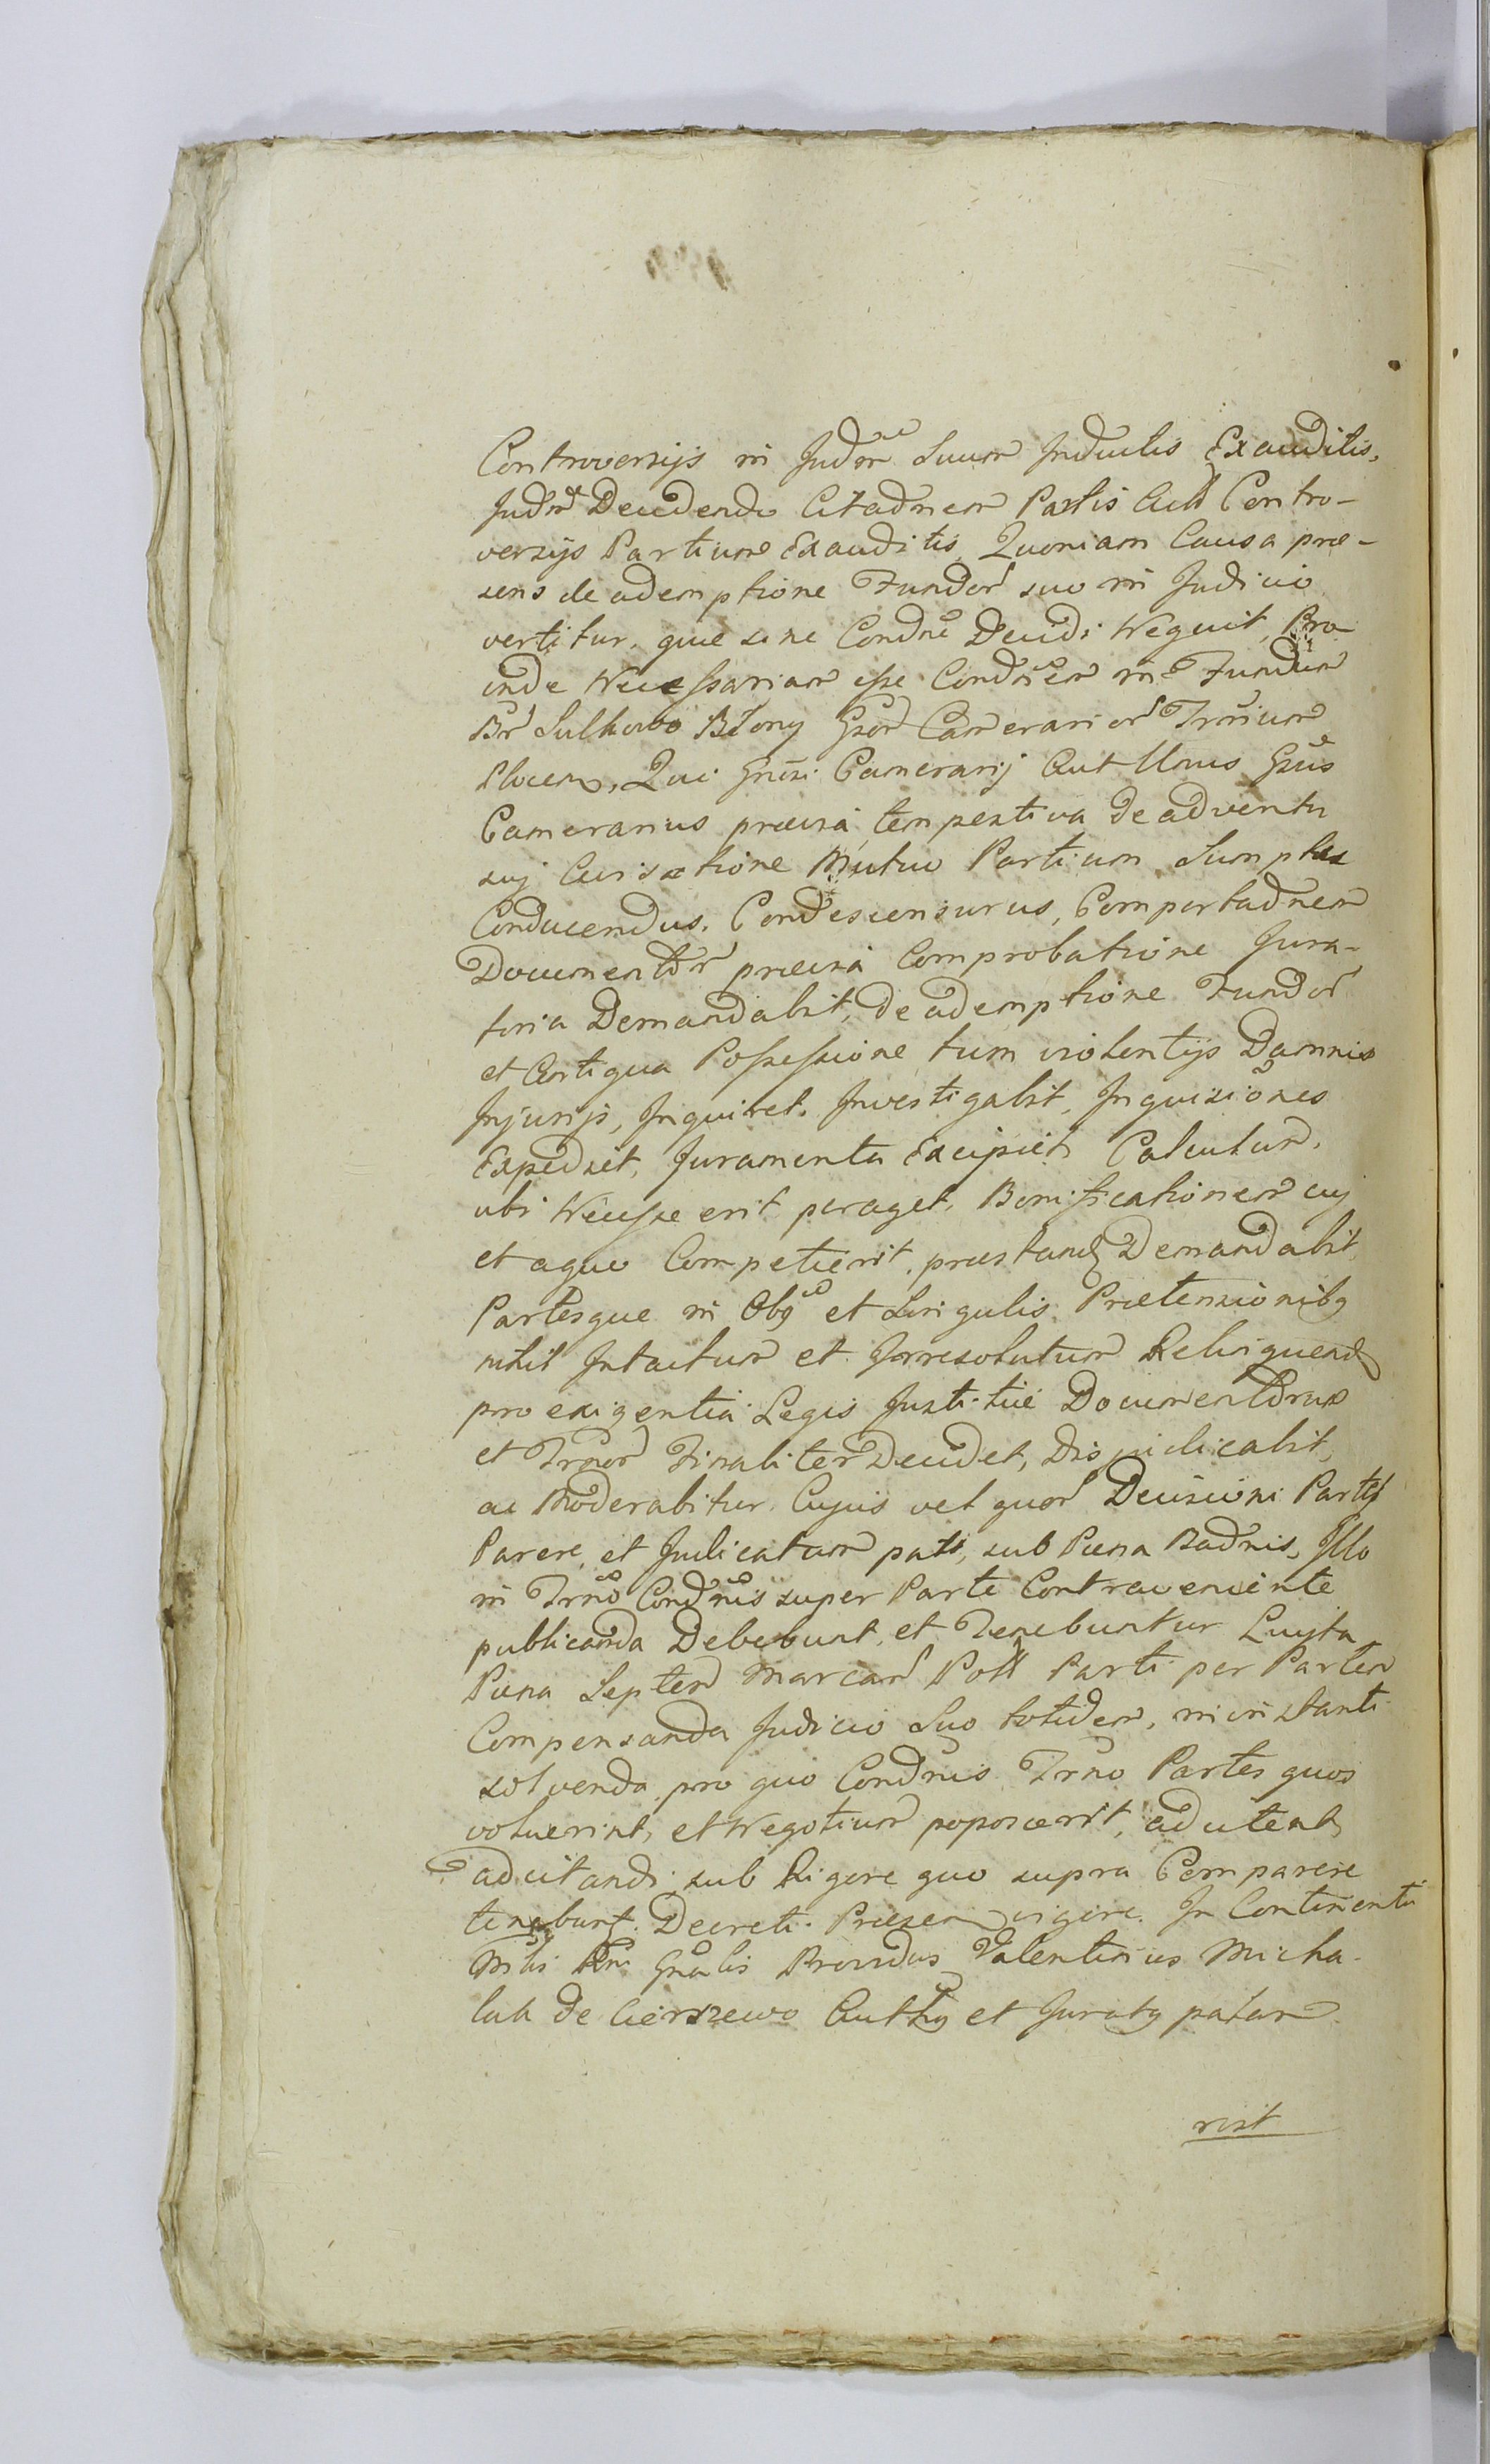 Controversijs in Judm Suum Inductis Exauditis,
Judm Decidendo Citadnem Partis Act Contro-
versijs Partium Exauditis, Quoniam Causa præ-
sens de ademptione Fundor suo in Judicio
vertitur, quæ sine Condne Decidi Nequit, Pro-
inde Necessariam esse Condnem in Fundum
Br Sulkowo Błony Gsor Camerarior Trrium
Plocen, Qui Gnsi Camerarij Aut Unus Gsus
Camerarius prævia tempestiva de adventu
suj Avisatione Mutuo Partium Sumptu
Conducendus, Condescensurus, Comportadnem
Documentor prævia Comprobatione Jura-
toria Demandabit, de ademptione Fundor
et Antiqua Possessione tum violentijs Damnis
Injurijs, Inquiret, Investigabit, Inquisiones
Expediet, Juramenta Excipiet Calculum,
ubi Necesse erit peraget, Bonificationem cuj
et a quo Competierit, præstand Demandabit,
Partesque in Obq et Singulis Prætensionibq
nihil Intactum et Irresolutum Relinquend
pro exigentia Legis Justitiæ Documentorum
et Trnor Finaliter Decidet, Disjudicabit,
ac Moderabitur. Cujus vel quor Decisioni Partes
Parere et Judicatum pati, sub Pæna Badnis, Illo
in Trno Condnis super Parte Contraveniente
publicanda Debebunt, et Tenebuntur Luyta
Pæna Septem Marcar Poll Parti per Partem
Compensanda Judicio Suo totidem, in instanti
solvenda, pro quo Condnis Trno Partes quos
voluerint, et Negotium poposcerit, adcitent
adcitandi sub Rigore quo supra Comparere
tenebunt. Decreti Præsen vigore. In Continenti
Mtli Rni Gnalis Providus Valentinus Micha-
lak de Cierszewo Authq et Juratq palam
rect